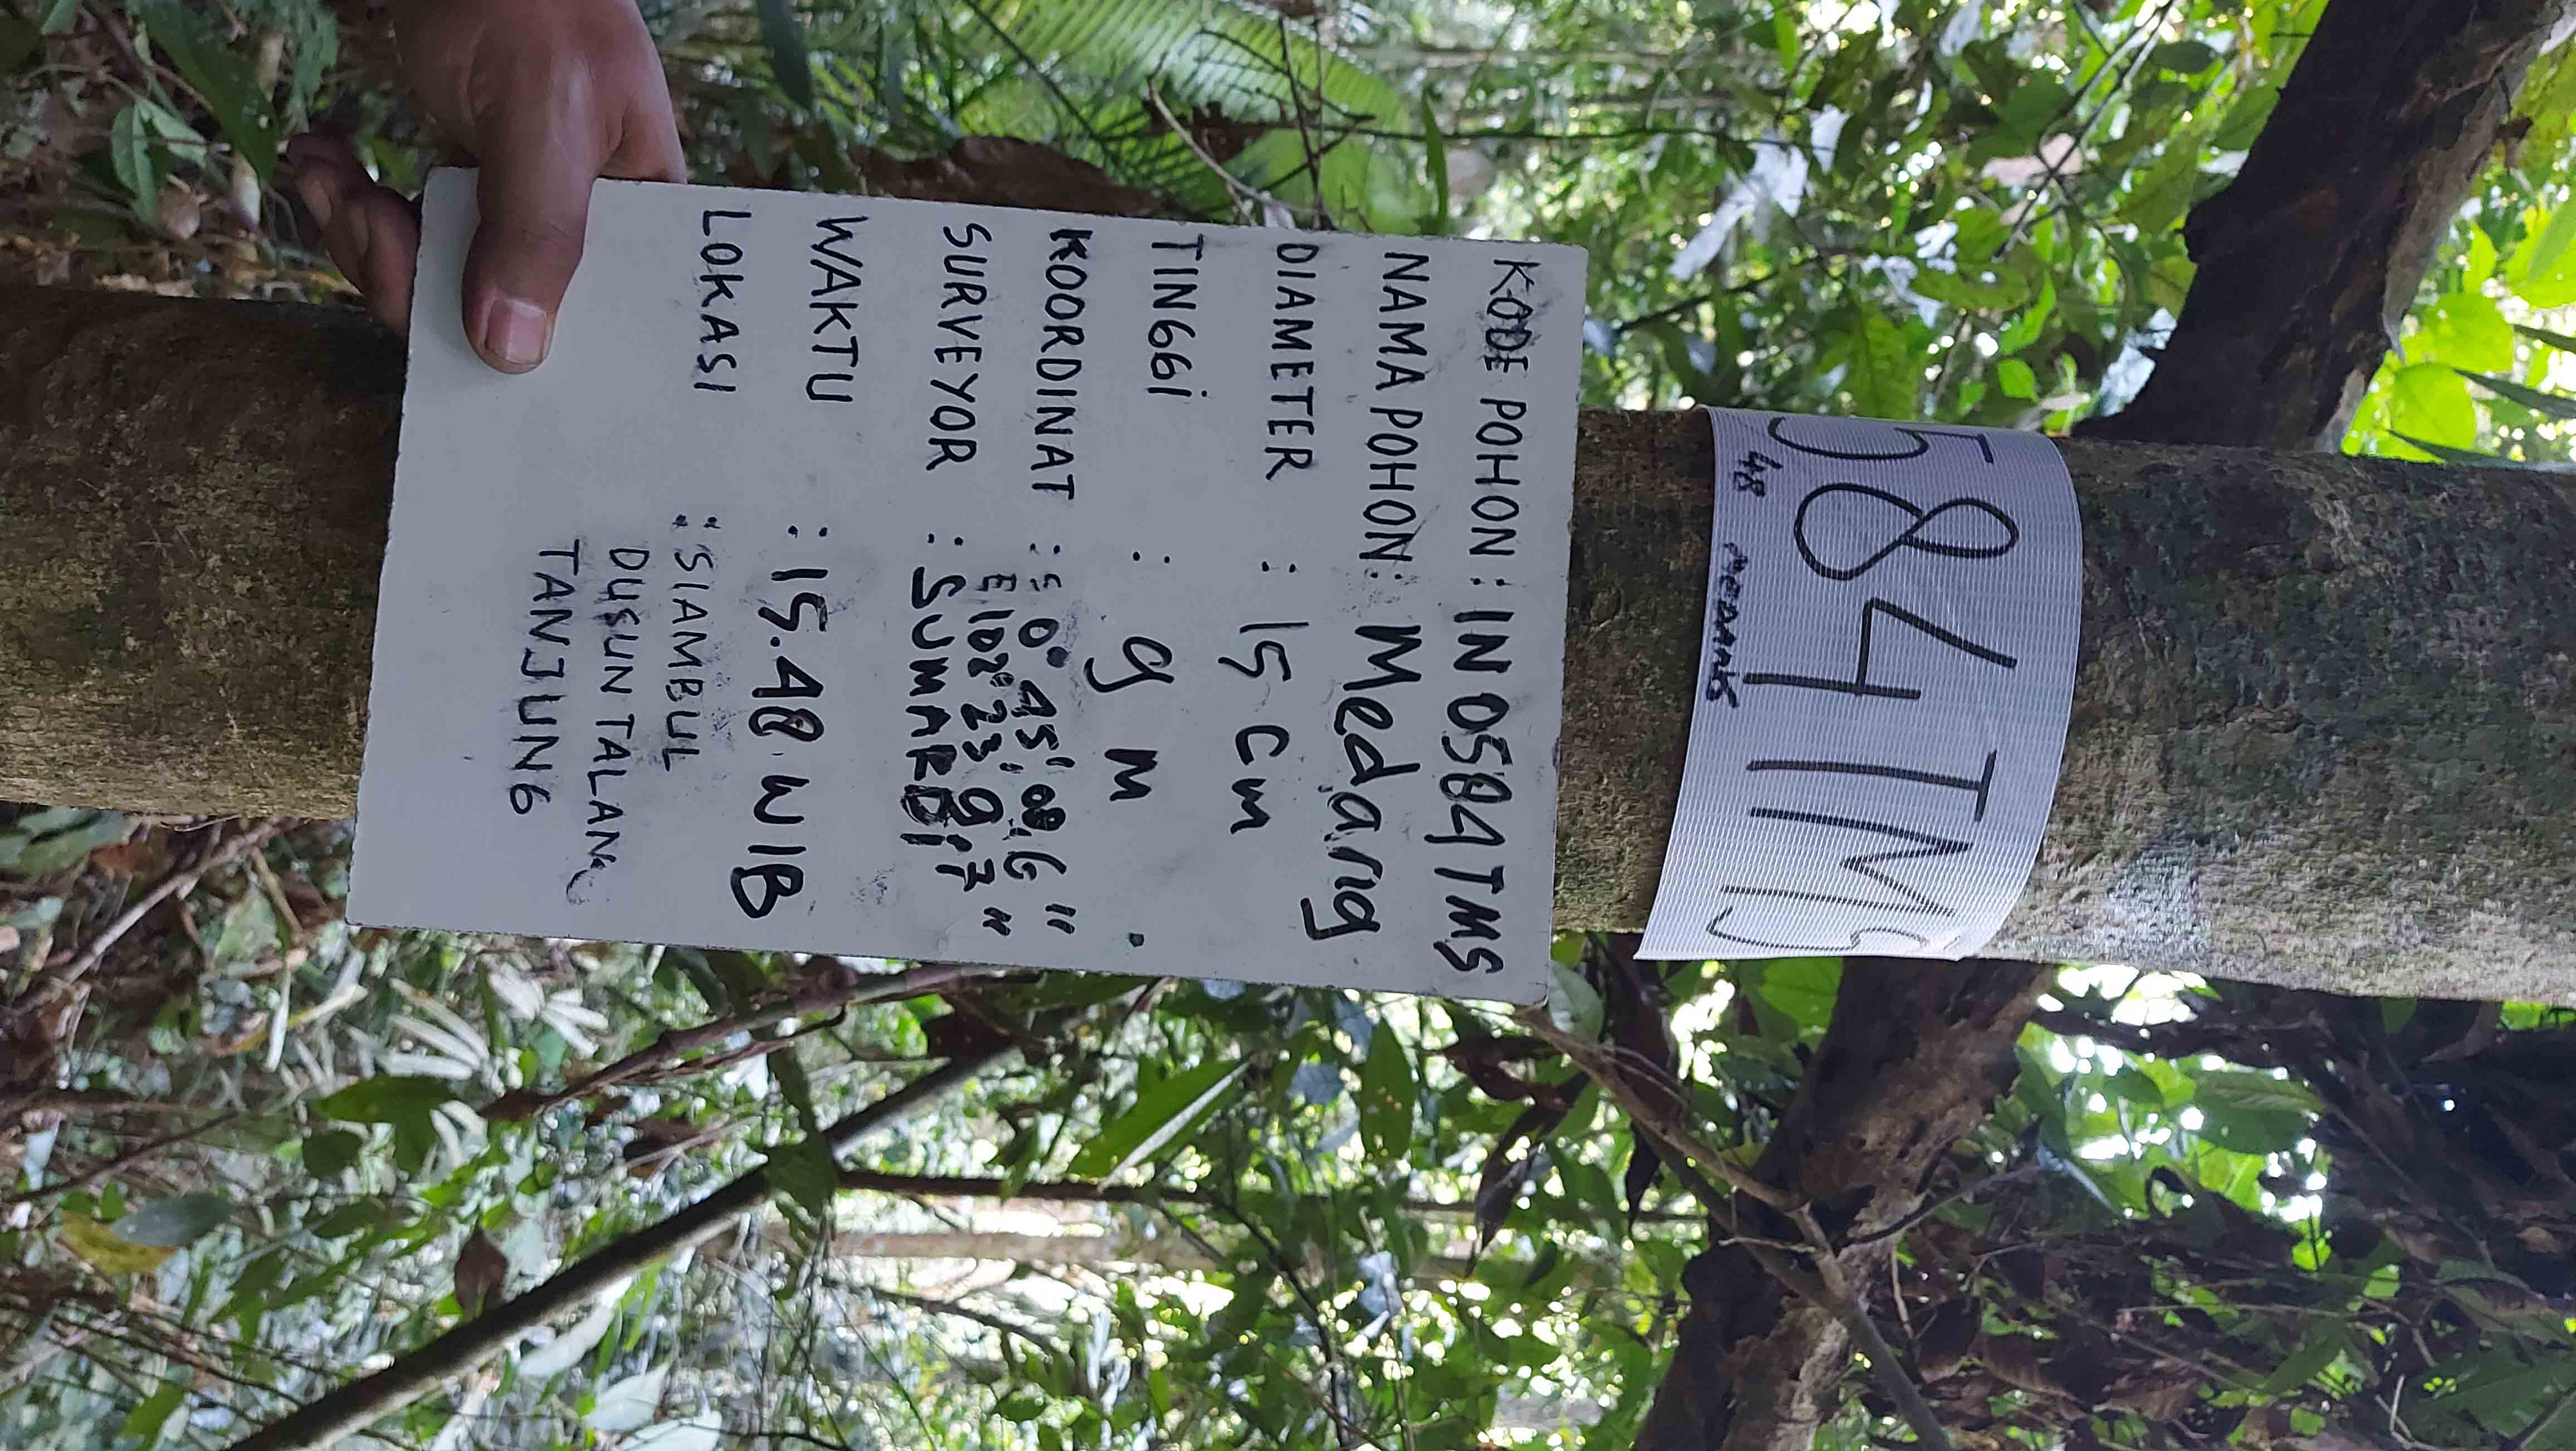 584TMS
48 MEDANG
KODE POHON : IN 0584 TMS
NAMA POHON : Medang
DIAMETER : 15 cm
TINGGi : 9 M
KOORDINAT : S 0° 45' 08.6"
E 102° 23' 9.7"
SURVEYOR : SUMARDI
WAKTU : 15.48 WIB
LOKASI : SIAMBUL
DUSUN TALANG
TANJUNG